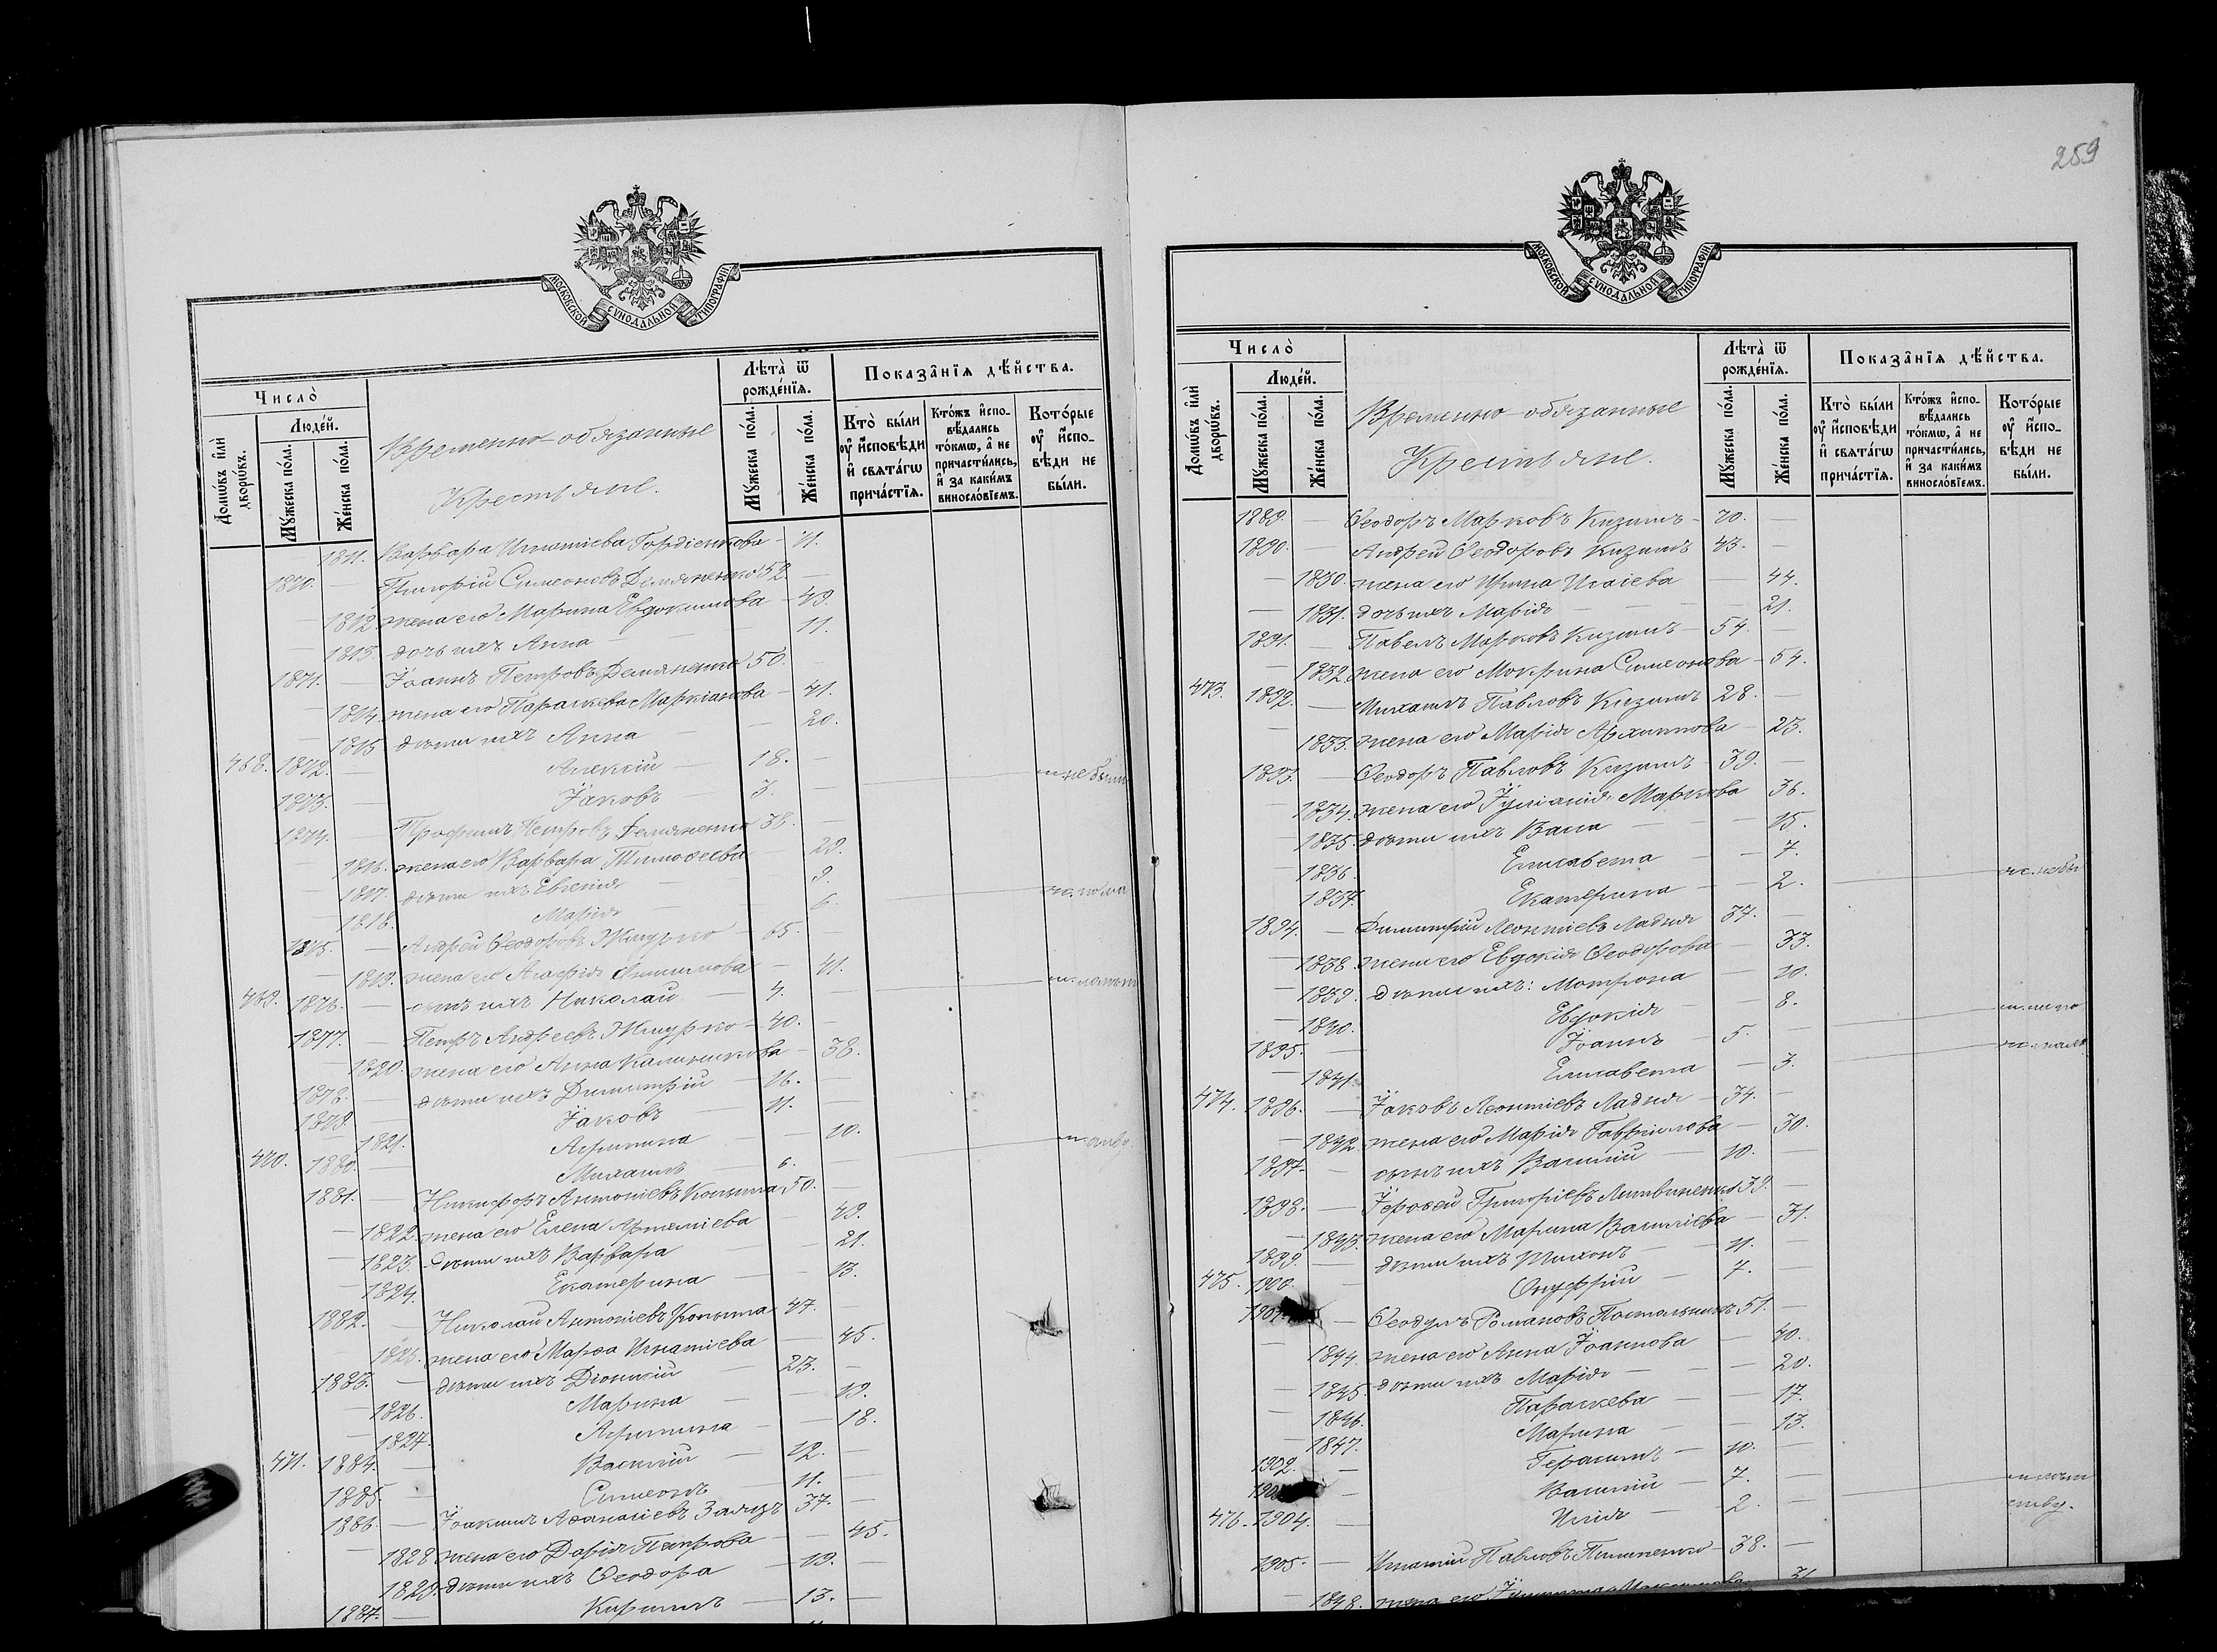 259
МОСКОВСКОЙ СУНОДАЛЬНОЙ ТИПОГРАФІИ
Число̀
Домѡ́въ и҆лѝ дворѡ́въ.
Люде́й.
Мꙋ́жеска по́ла.
Же́нска по́ла.
Временно-обязанные
Крестьяне.
Лѣ́та ѿ рожде́нїѧ.
Мꙋ́жеска по́ла.
Же́нска по́ла.
Показа̂нїѧ дѣ́йства.
Кто̀ бы́ли ᲂу҆ и҆сповѣ́ди и҆ свѧта́гѡ прича́стїѧ.
Кто́жъ и҆спо-
вѣ́дались
то́кмѡ, а҆ не
причасти́лись,
и҆ за каки́мъ
винословїемъ.
Кото́рые
ᲂу҆ и҆спо-
вѣ́ди не
бы́ли.
1811. Варвара Игнатіева Гордіенкова — 71.
1870. — Григорій Симеоновъ Демяненко 52. —
— 1812. жена его Марина Евдокимова — 49.
— 1813. дочь ихъ Анна — 11.
1871. — Іоаннъ Петровъ Демяненко 50. —
— 1814. жена его Параскева Маркіанова — 41.
— 1815. дѣти ихъ Анна — 20.
468. 1872. — Алексій — 18. —
1873. — Іаковъ — 3. —
1874. — Трофимъ Петровъ Демяненко 38. —
— 1816. жена его Варвара Тимофеева — 29.
— 1817. дѣти ихъ Евгенія — 9.
— 1818. Марія — 6.
1875. — Андрей Ѳеодоровъ Жмурко — 65. —
— 1819. жена его Агафія — 41.
469. 1876. — сынъ ихъ Николай — 4.
1877. — Петръ Андреевъ Жмурко — 40. —
1820. жена его Анна Калиникова — 38.
1878. — дѣти ихъ Димитрій — 16. —
1879. — Іаковъ — 11. —
— 1821. Агрипина — 10.
470. 1880. — Михаилъ — 6.
1881. — Никифоръ Антоніевъ Копыта 50. —
— 1822. жена его Елена Артеміева — 49.
— 1823. дѣти ихъ Варвара — 21.
— 1824. Екатерина — 13.
1882. — Николай Антоніевъ Копыта 47.
1825. жена его Марѳа Игнатіева — 45.
1883. — дѣти ихъ Діонисій — 23. —
— 1826. Марина — 19.
— 1827. Агрипина — 18.
471. 1884. — Василій — 12. —
1885. — Симеонъ — 11. —
1886. — Іоакимъ Аѳанасіевъ 37. —
— 1828 жена его Дарія Петрова — 45.
1829. дѣти ихъ Ѳеодора — 19.
1887. — Кирилъ — 13. —
МОСКОВСКОЙ СУНОДАЛЬНОЙ ТИПОГРАФІИ
Число̀
Домѡ́въ и҆лѝ дворѡ́въ.
Люде́й.
Мꙋ́жеска по́ла.
Же́нска по́ла.
Временно-обязанные
Крестьяне.
Лѣ́та ѿ рожде́нїѧ.
Мꙋ́жеска по́ла.
Же́нска по́ла.
Показа̂нїѧ дѣ́йства.
Кто̀ бы́ли ᲂу҆ и҆сповѣ́ди и҆ свѧта́гѡ прича́стїѧ.
Кто́жъ и҆спо-
вѣ́дались
то́кмѡ, а҆ не
причасти́лись,
и҆ за каки́мъ
винословїемъ.
Кото́рые
ᲂу҆ и҆спо-
вѣ́ди не
бы́ли.
1889. — Ѳеодоръ Марковъ Кизимъ — 70. —
1890. — Андрей Ѳеодоровъ Кизимъ 43. —
— 1830. жена его Ирина Исаіева — 44.
— 1831. дочь ихъ Марія — 21.
1891. — Павелъ Марковъ Кизимъ — 54. —
— 1832. жена его Мокрина Симеонова — 54.
473. 1892. — Михаилъ Павловъ Кизимъ 28. —
— 1833. жена его Марія Архипова — 23.
1893. — Ѳеодоръ Павловъ Кизимъ — 39. —
— 1834. жена его Іуліанія Маркова 36.
1835. дѣти ихъ Васа — 15.
1836. Елисавета — 7.
1837. Екатерина — 2.
1894. — Димитрій Леонтіевъ Ладня 37. —
— 1838. жена его Евдокія Ѳеодорова — 33.
— 1839. дѣти ихъ: Мотрона — 10.
— 1840. Евдокія — 8.
1895. — Іоаннъ — 5. —
— 1841. Елисавета — 3.
474. 1896. — Іаковъ Леонтіевъ Ладня — 34. —
— 1842. жена его Марія Гавриилова — 30.
1897. — сынъ ихъ Василій — 10. —
1898. — Іероѳей Григоріевъ Литвиненко 39. —
— 1843. жена его Марина Василіева — 31.
1899. — дѣти ихъ Тихонъ — 11. —
475. 1900. — Онуфрій — 7. —
1901. — Ѳеодулъ Романовъ Постольникъ 51. —
— 1844. жена его Анна Іоаннова — 40.
— 1845. дѣти ихъ Марія — 20.
— 1846. Параскева — 17.
— 1847. Марина — 13.
1902. — Герасимъ — 10. —
— Василій — 7. —
476. 1904. — Илія — 2. —
1905. — Игнатій Павловъ Пилипенко — 38. —
— 1848. жена его 31.